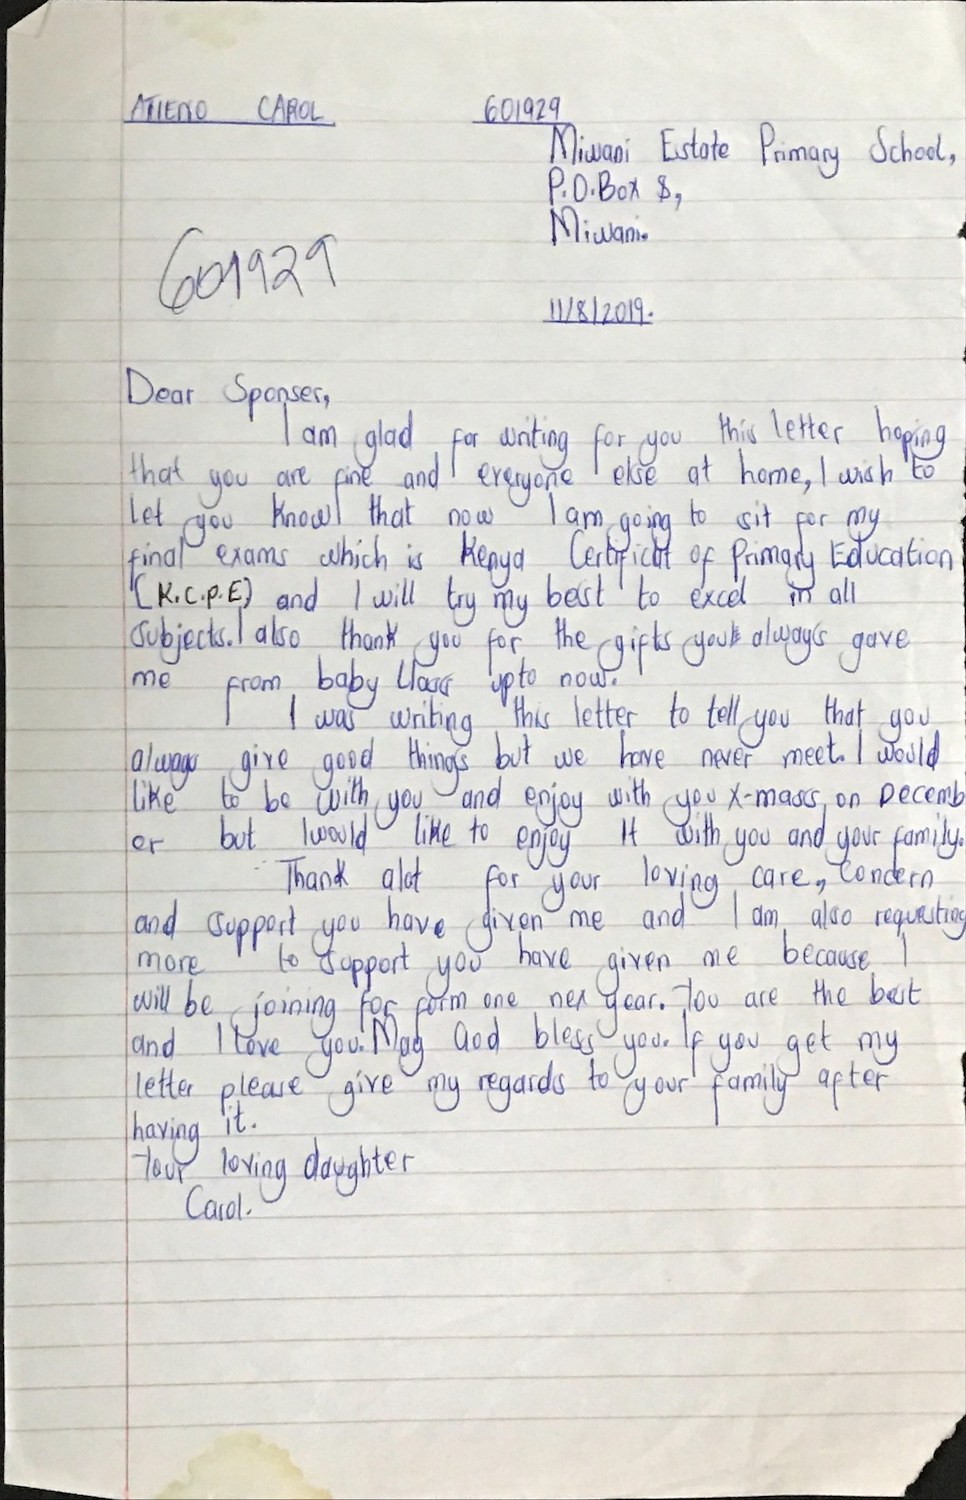 ATIENO CAROL 601929
Miwani Estate Primary School,
P.O.Box 8,
Miwani.
601929
11/8/2019.
Dear Sponser,
I am glad for writing for you this letter hoping
that you are fine and everyone else at home, I wish to
let you know that now I am going to sit for my
final exams which is Kenya Certificat of Primary Education
(K.C.P.E) and I will try my best to excel in all
subjects. I also thank you for the gifts you always gave
me from baby Class upto now.
I was writing this letter to tell you that you
always give good things but we have never meet. I would
like to be with you and enjoy with you X-mass on Decemb
er but I would like to enjoy it with you and your family.
Thank alot for your loving care, Concern
and support you have given me and I am also requesting
more to support you have given me because I
will be joining for form one nex year. You are the best
and I love you. May God bless you. If you get my
letter please give my regards to your family after
having it.
Your loving daughter
Carol.